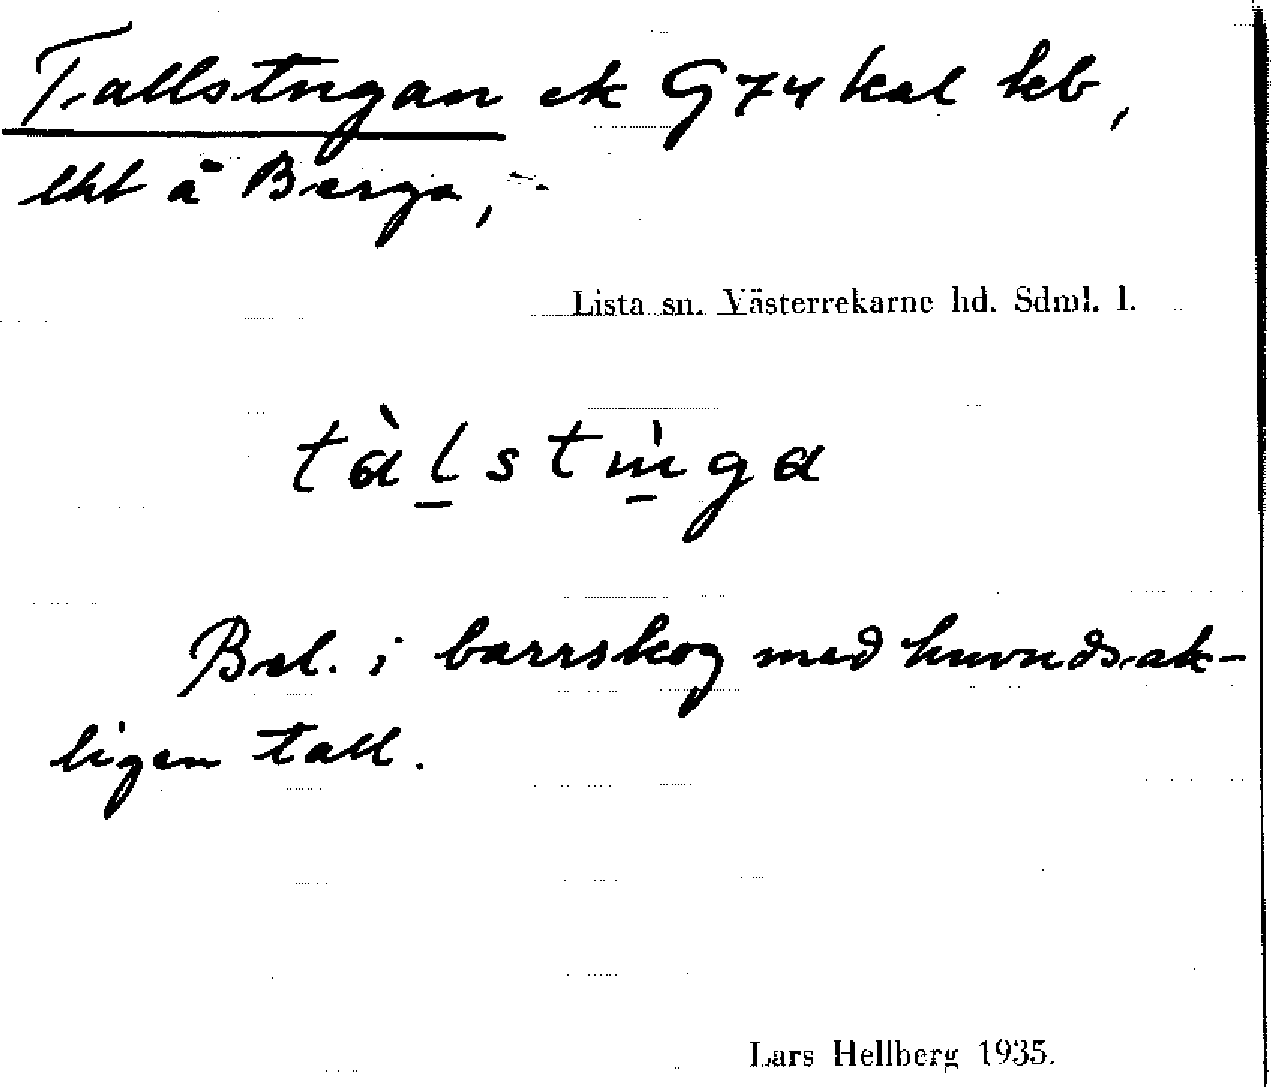 Tallstugan ek G74 kal kb,
lht å Berga,
Lista sn. Västerrekarne hd. Sdml. l.
tàl̠stu̠̇ga
Bel. i barrskog med huvudsak-
ligen tall.
Lars Hellberg 1935.